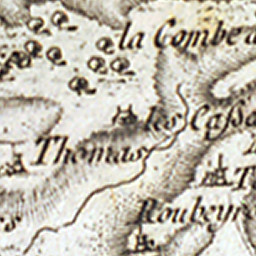 la Combe
les Cassa
Thomas
Roubeyre